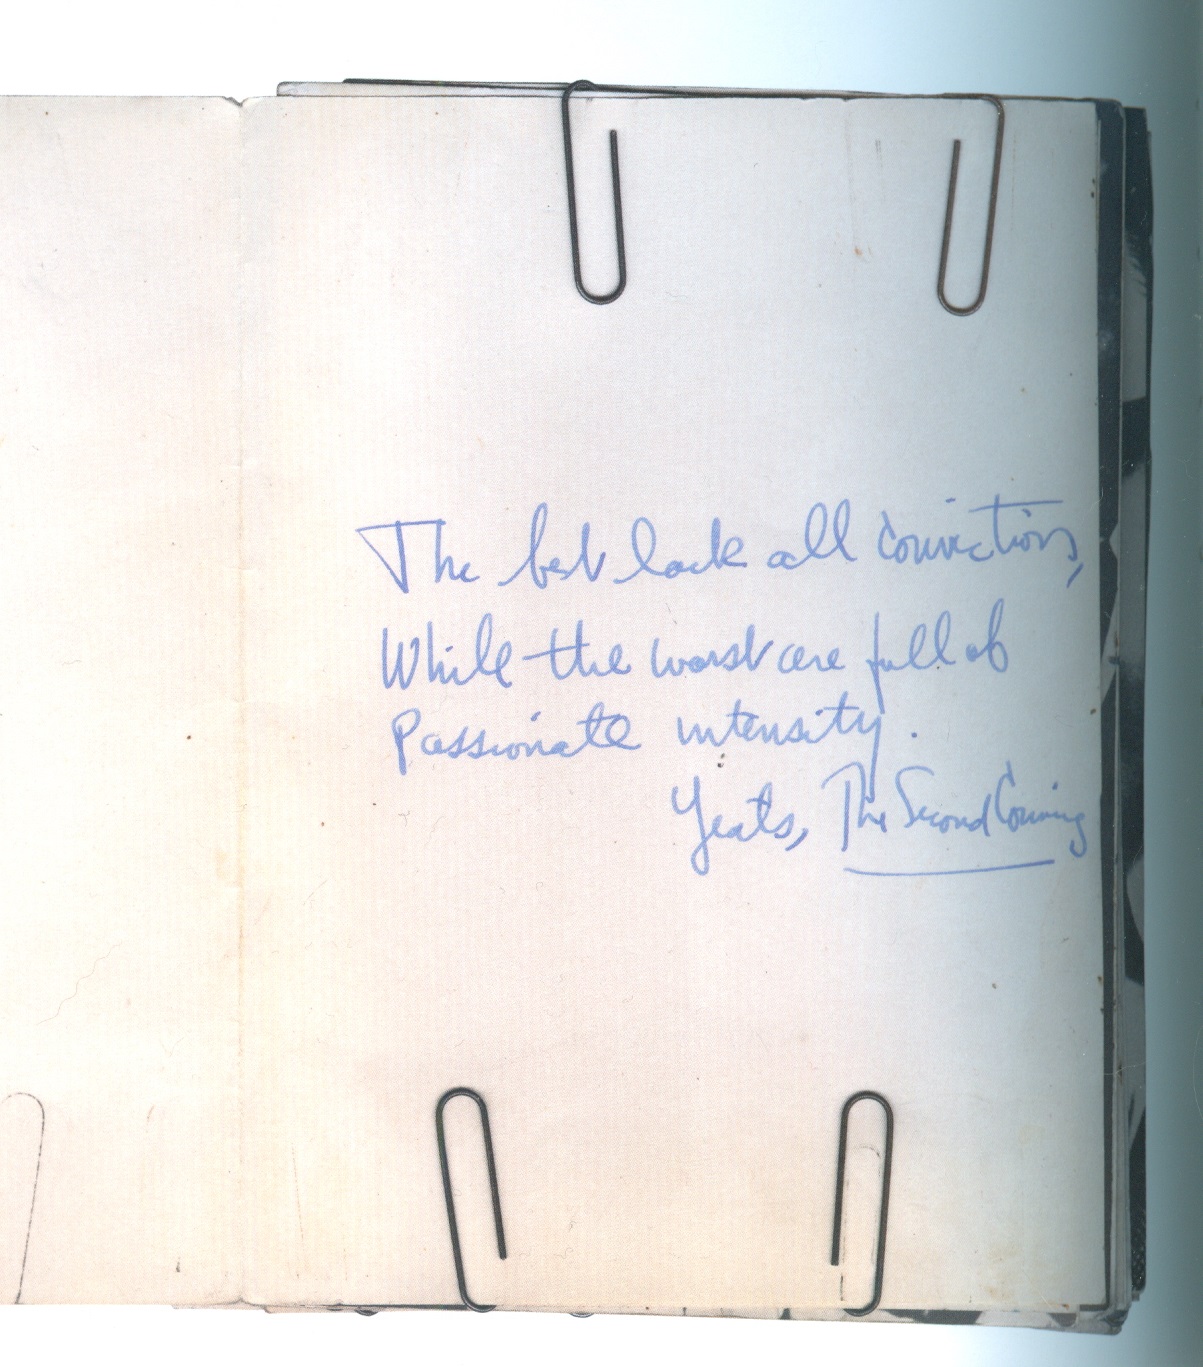 The best lack all convictions,
While the worst are full of
Passionate intensity.
Yeats, The Second Coming